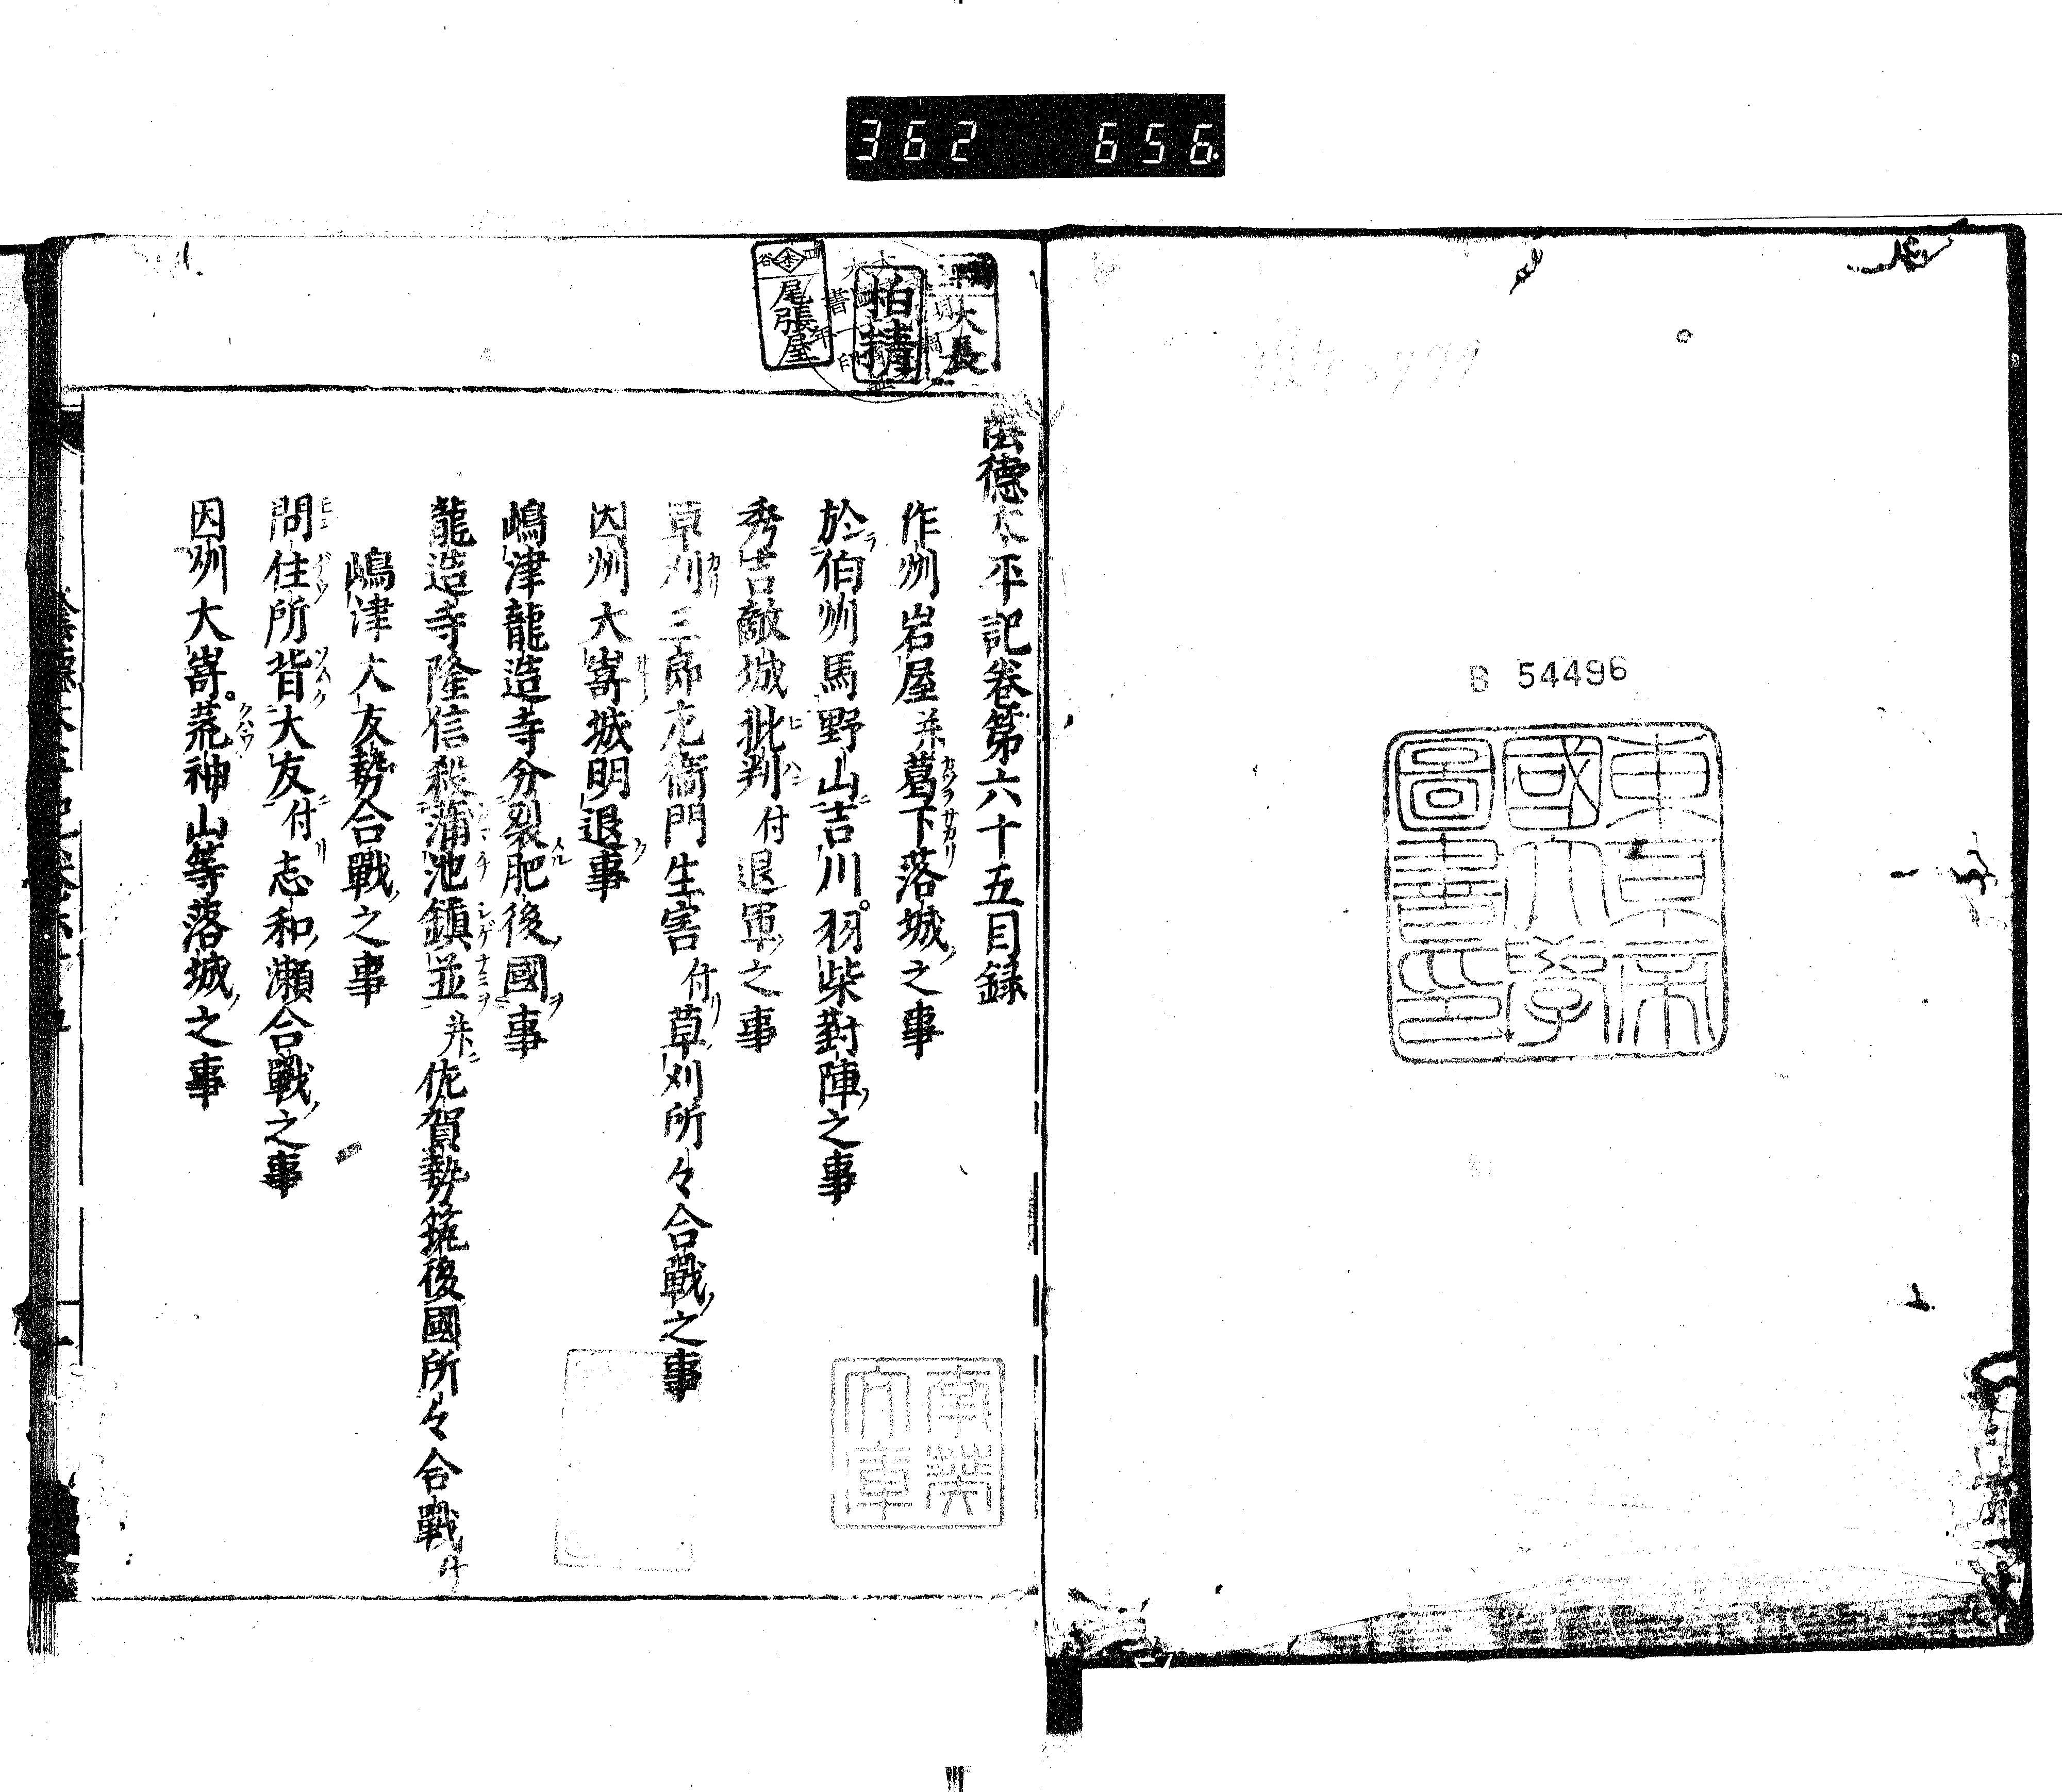 362 656
B 54496
東京帝
國大學
圖書印
大長
柏清
尾張屋
南葵
文庫
陰德太平記卷第六十五目録
作州岩屋并葛下落城之事
於伯州馬野山吉川羽柴對陣之事
秀吉敵城批判付退軍之事
草刈三郎左衞門生害付草刈所々合戰之事
因州大嵜城明退事
嶋津龍造寺分裂肥後國事
龍造寺隆信殺蒲池鎮並并佐賀勢筑後國所々合戰付
嶋津大友勢合戰之事
問住所背大友付志和瀬合戰之事
因州大嵜荒神山等落城之事